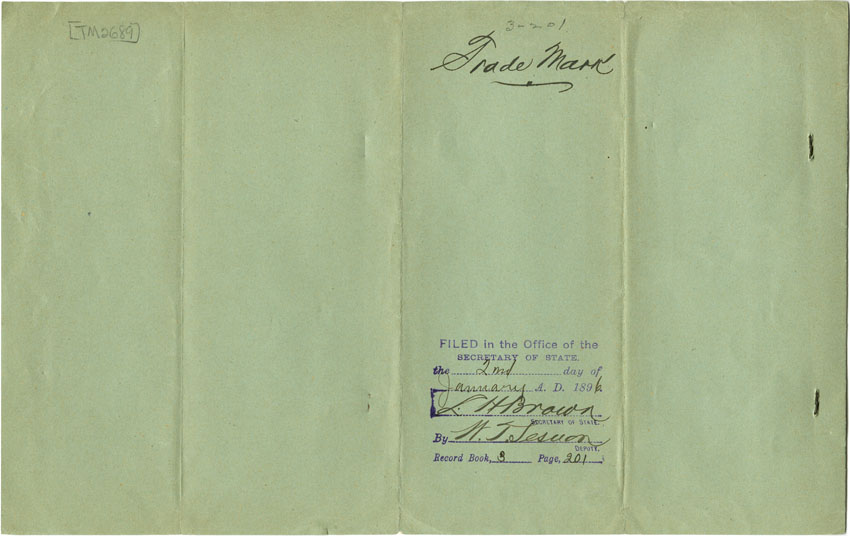 [TM2689]
3-201
Trade Mark
FILED in the Office of the
SECRETARY OF STATE,
the 2nd day of
January A. D. 1896
L. H Brown
SECRETARY OF STATE.
By W. T.
DEPUTY.
Record Book, 3 Page, 201